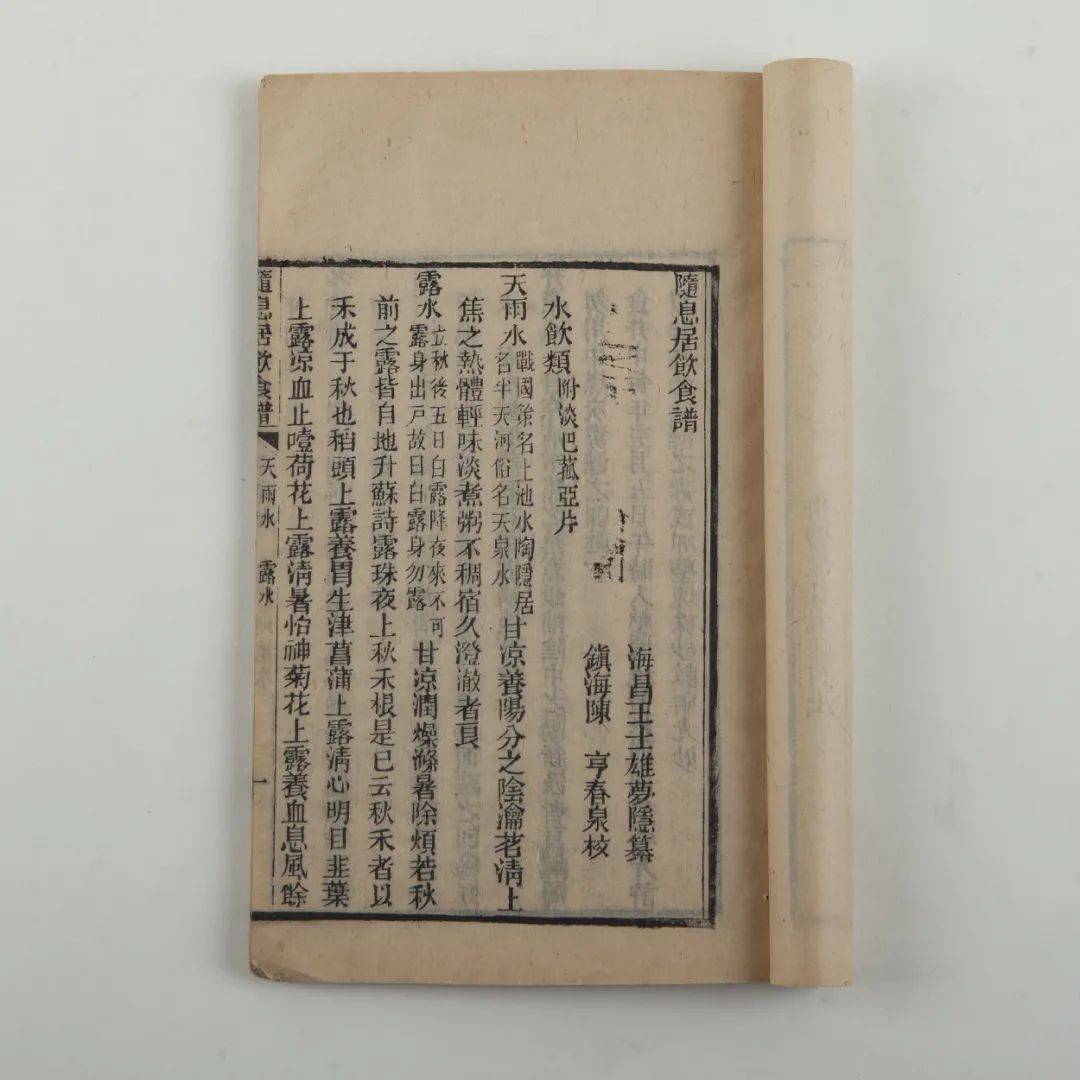 隨息居飲食譜
海昌王士雄夢隱纂
鎮海陳　亨春泉校
水飲類附淡巴菰亞片
天雨水戰國策名上池水陶隱居名半天河俗名天泉水甘涼養陽分之陰瀹茗淸上
焦之熱體輕味淡煮粥不稠宿久澄澈者良
露水立秋後五日白露降夜來不可露身出戶故曰白露身勿露甘涼潤燥滌暑除煩若秋
前之露皆自地升蘇詩露珠夜上秋禾根是已云秋禾者以
禾成于秋也稻頭上露養胃生津菖蒲上露淸心明目韭葉
上露凉血止噎荷花上露淸暑怡神菊花上露養血息風餘
隨息居飲食譜　天雨水　露水　一